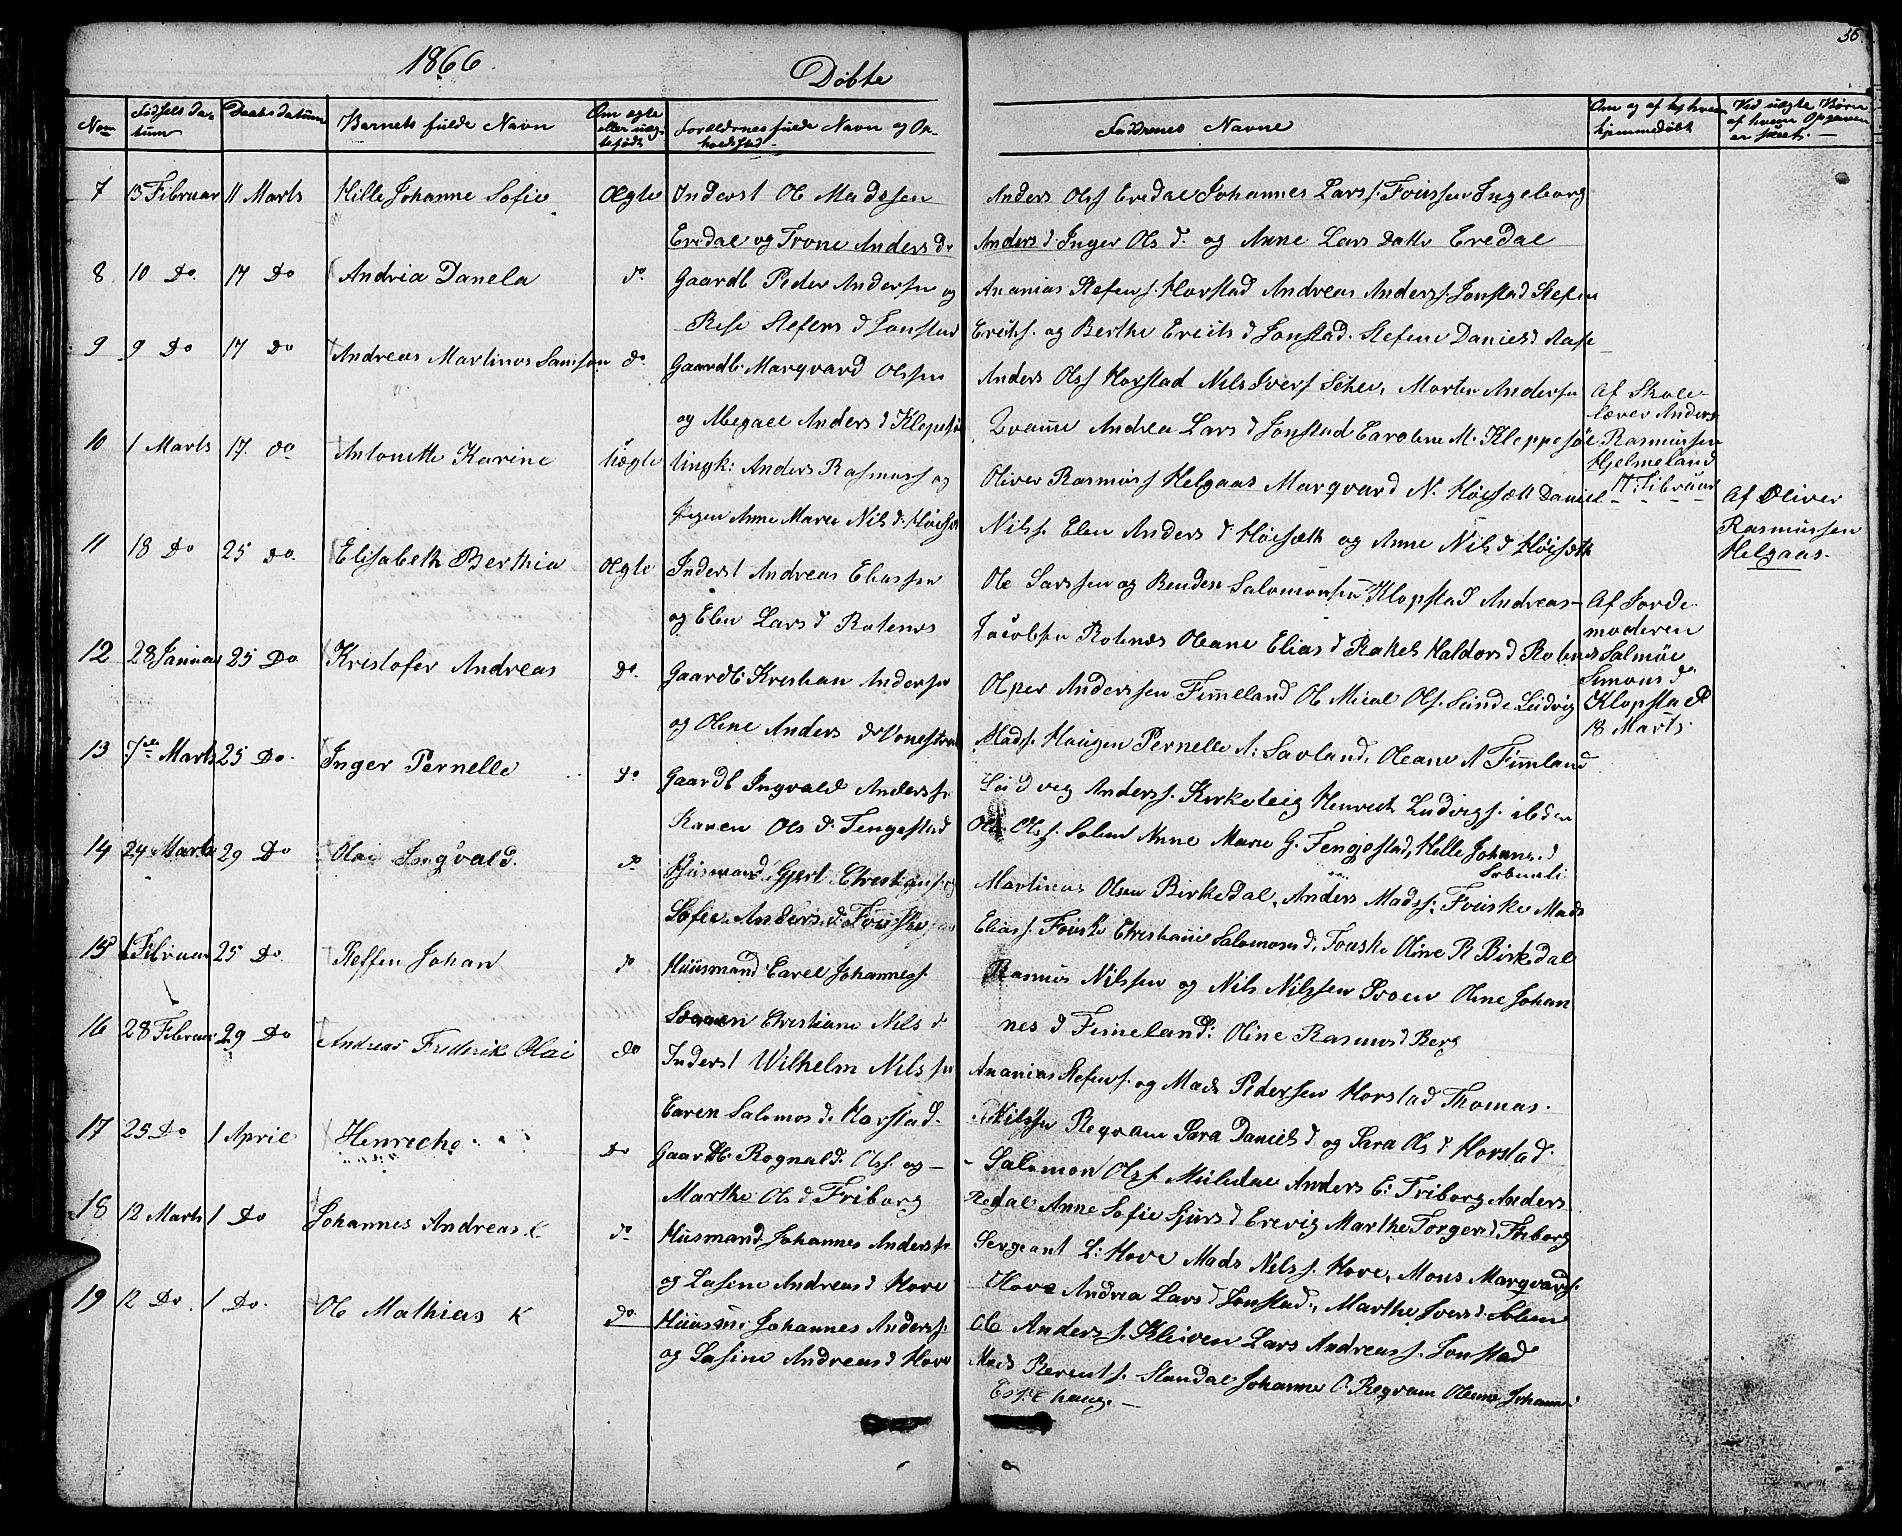 36.
1866.
Döbte
Nom
Födsels da-
tum
Daabsdatum
Barnets fulde Navn
Om ægte
eller uæg-
te födt
Forældrenes fulde Navn og Op-
holdsted
Faddernes Navne
Om og af hvem
hjemmedöbt
Ved uægte Börn
af hvem Opgaven
er skeet.
7 13 Februar 11 Marts Hille Johanne Sofie Ægte Inderst Ole Madssen
Eredal og Trone Anders d.
Anders Ols Eredal Johannes Lars s. Ingeborg
Anders d Inger Ols d. og Anne Lars Datter Eredal
8 10 Do 17 Do Andria Danela do. Gaardb Peder Andersen og
Rese Stefens d Jonstad
Ananias Stefens. Horstad Andreas Anders s. Jonstad Stefen
Eriks s. og Berthe Eriks d Jonstad. Stefene Daniels d Aase
9 9 Do 17 Do Andreas Martinus Samson do. Gaardb. Marqvard Olsen
og Abegael Anders d
Anders Ols s Horstad Nils Ivers s. Morten Andersen
Andrea Lars d Jonstad Caroline M. Kleppesöe
Af Skole-
lærer Anders
Rasmussen
Hjelmeland
17. Februar
10 1 Marts 17. do Antonette Karine Uægte Ungk: Anders Rasmuss og
Pigen Anne Marie Nils d.
Oliver Rasmus s Helgaas Marqvard N. Höisæth Daniel
Nils s. Elen Anders d Höisæth og Anne Nils d Höisæth
Af Oliver
Rasmussen
Helgaas.
11 18 Do 25 do. Elisabeth Berthia Ægte Inderst Andreas Eliassen
og Elen Lars d Rotenes
Ole Larssen og Salomonsen Klopstad Andreas
Jacobsen Rotenes Oleane Elias d Rakel Haldors d Rotenes
Af Jorde
moderen
Salmöe
Simons d
Klopstad
18 Marts.
12 28 Januar 25 Do Kristofer Andreas do. Gaardb. Krestian Andersen
og Oline Anders d
Andersen Fimmeland Ole Mical Ols s. Sunde Ludvig
Mads s. Haugen Pernelle A. Savland, Oleane A Fimland
13 7de Marts 25 Do Inger Pernelle do Gaardb Ingvald Anders s.
Karen Ols d. Tengestad
Ludvig Anders s. Kirkeleig Henrich Ludvigs s. ibden
Ole Ols s. Solem Anne Marie G. Fengestad, Helle Johans d
14 24 Marts 29 Do Olai Ingvald. do Husmand Gjert Christians s. og
Sofie Anders d. Fouske
Martinus Olsen Birkedal, Anders Mads s. Fouske Mads
Elias s. Fouske Christiane Salomons d, Fouske Oline R Birkedal
15 Februar 25 Do. Steffen Johan do Huusmand Carel Johannes s.
Christiane Nils d
Rasmus Nilssen og Nils Nilssen Oline Johan
nes d Fimeland: Oline Rasmus d Berg
16 28 Februar 29 Do Andreas Frederik Olai do Inderst Wilhelm Nils sen
Caren Salomos d. Horstad.
Ananias Stefens s. og Mads Pedersen Horstad Thomas.
Nilssen Reqvam Sara Daniels d og Sara Ols d Horstad.
17 25 Do 1 April Henreche Do Gaardb. Rognald Ols s. og
Marthe Ols d Friborg
Salomon Ols s. Mieldal Anders E. Friborg Anders
Redal Anne Sofie Sjurs d Erevig Marthe Torgers d Friborg
18 12 Marts 1 Do Johannes Andreas K do Husmand Johannes Anders s.
og Lasine Andreas d Hove
Sergeant L: Hove Mads Nils s. Hove, Mons Marqvards.
Hove Andrea Lars d Jonstad, Marthe Ivers d Solem
19 12 Do. 1 Do. Ole Mathias K do. Huusm: Johannes Anders s.
og Lasine Andreas d Hove
Ole Anders s. Kleiven Lars Andreas s. Jonstad
Mads Berent s. Standal Johanne O. Reqvam Johanne
Espehaug.